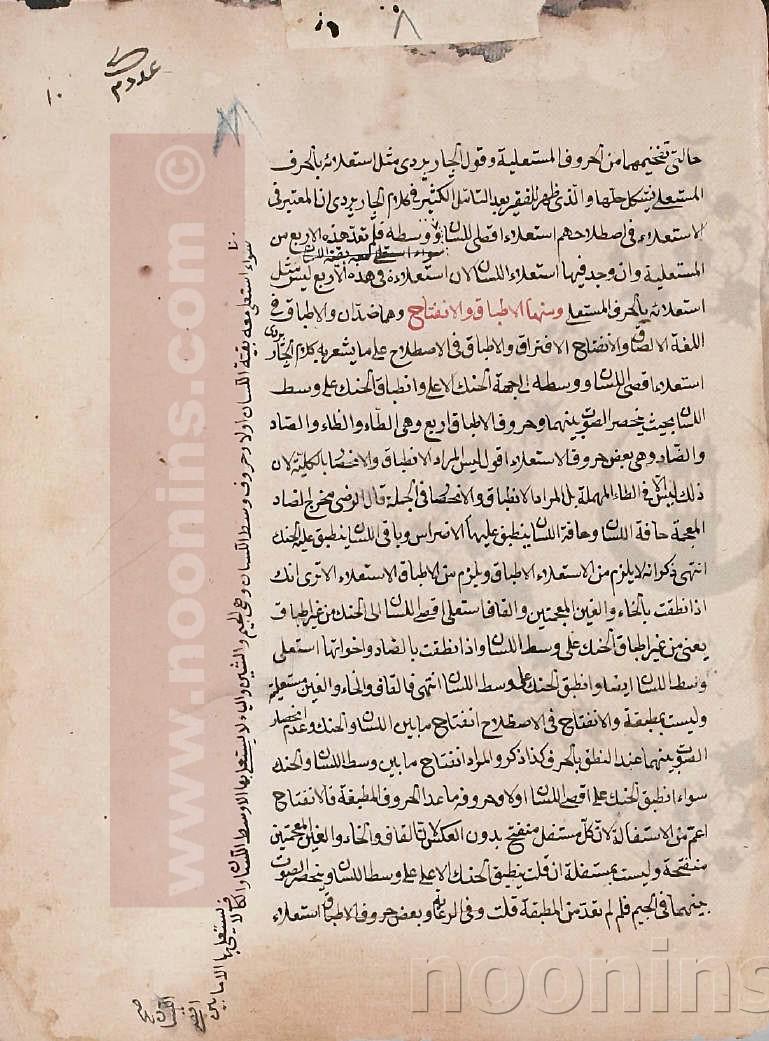 ٨
١٠
حالتى تفخيمهما من الحروف المستعلية وقول الجاربردى مثل استعلائه بالحرف
المستعلى يشكل حلها والذى ظهر للفقير بعد التأمل الكثير فى كلام الجاربردى ان المعتبر فى
الاستعلاء فى اصطلاحهم استعلاء اقصى اللسان ووسطه فلم تعد هذه الاربع من
سواء استعلى معه بقية اللسان
المستعلية وان وجد فيها استعلاء اللسان لان استعلاءه فى هذه الاربع ليس مثل
استعلائه بالحرف المستعلى ومنها الاطباق والانفتاح وهما ضدان والاطباق فى
اللغة الالصاق والانفتاح الافتراق والاطباق فى الاصطلاح على ما يشعر به كلام الجاربردى
استعلاء اقصى اللسان ووسطه الى جهة الحنك الاعلى وانطباق الحنك على وسط
اللسان بحيث ينحصر الصوت بينهما وحروف الاطباق اربع وهى الطاء والظاء والصاد
والضاد وهى بعض حروف الاستعلاء اقول ليس المراد الانطباق والانحصار بالكلية لان
ذلك ليس الا فى الطاء المهملة بل المراد الانطباق والانحصار فى الجملة قال الرضى مخرج الضاد
المعجمة حافة اللسان وحافة اللسان ينطبق عليها الاضراس وباقى اللسان ينطبق عليه الحنك
انتهى ذكر انه لا يلزم من الاستعلاء الاطباق ويلزم من الاطباق الاستعلاء الا ترى انك
اذا نطقت بالخاء والغين المعجمتين والقاف استعلى اقصى اللسان الى الحنك من غير اطباق
يعنى من غير اطباق الحنك على وسط اللسان واذا نطقت بالصاد واخواتها استعلى
وسط اللسان ايضا وانطبق الحنك على وسط اللسان انتهى فالقاف والخاء والغين مستعلية
وليست بمطبقة والانفتاح فى الاصطلاح انفتاح ما بين اللسان والحنك وعدم انحصار
الصوت بينهما عند النطق بالحرف كذا ذكر والمراد انفتاح ما بين وسط اللسان والحنك
سواء انطبق الحنك على اقصى اللسان اولا وحروفه ما عدا الحروف المطبقة فالانفتاح
اعم من الاستفالة لان كل مستفل منفتح بدون العكس لان القاف والخاء والغين المعجمتين
منفتحة وليست بمستفلة ان قلت ينطبق الحنك الاعلى على وسط اللسان وينحصر الصوت
بينهما فى الجيم فلم لم تعد من المطبقة قلت وفى الرعاية وبعض حروف الاطباق استعلاء
سواء استعلى معه بقية اللسان اولا وحروف وسط اللسان وهى الجيم والشين والياء لا يستعلى بها الا وسط اللسان والكاف لا
يستعلى بها الا ما بين
اقصى
اللسان
© www.noonins.com
noonins